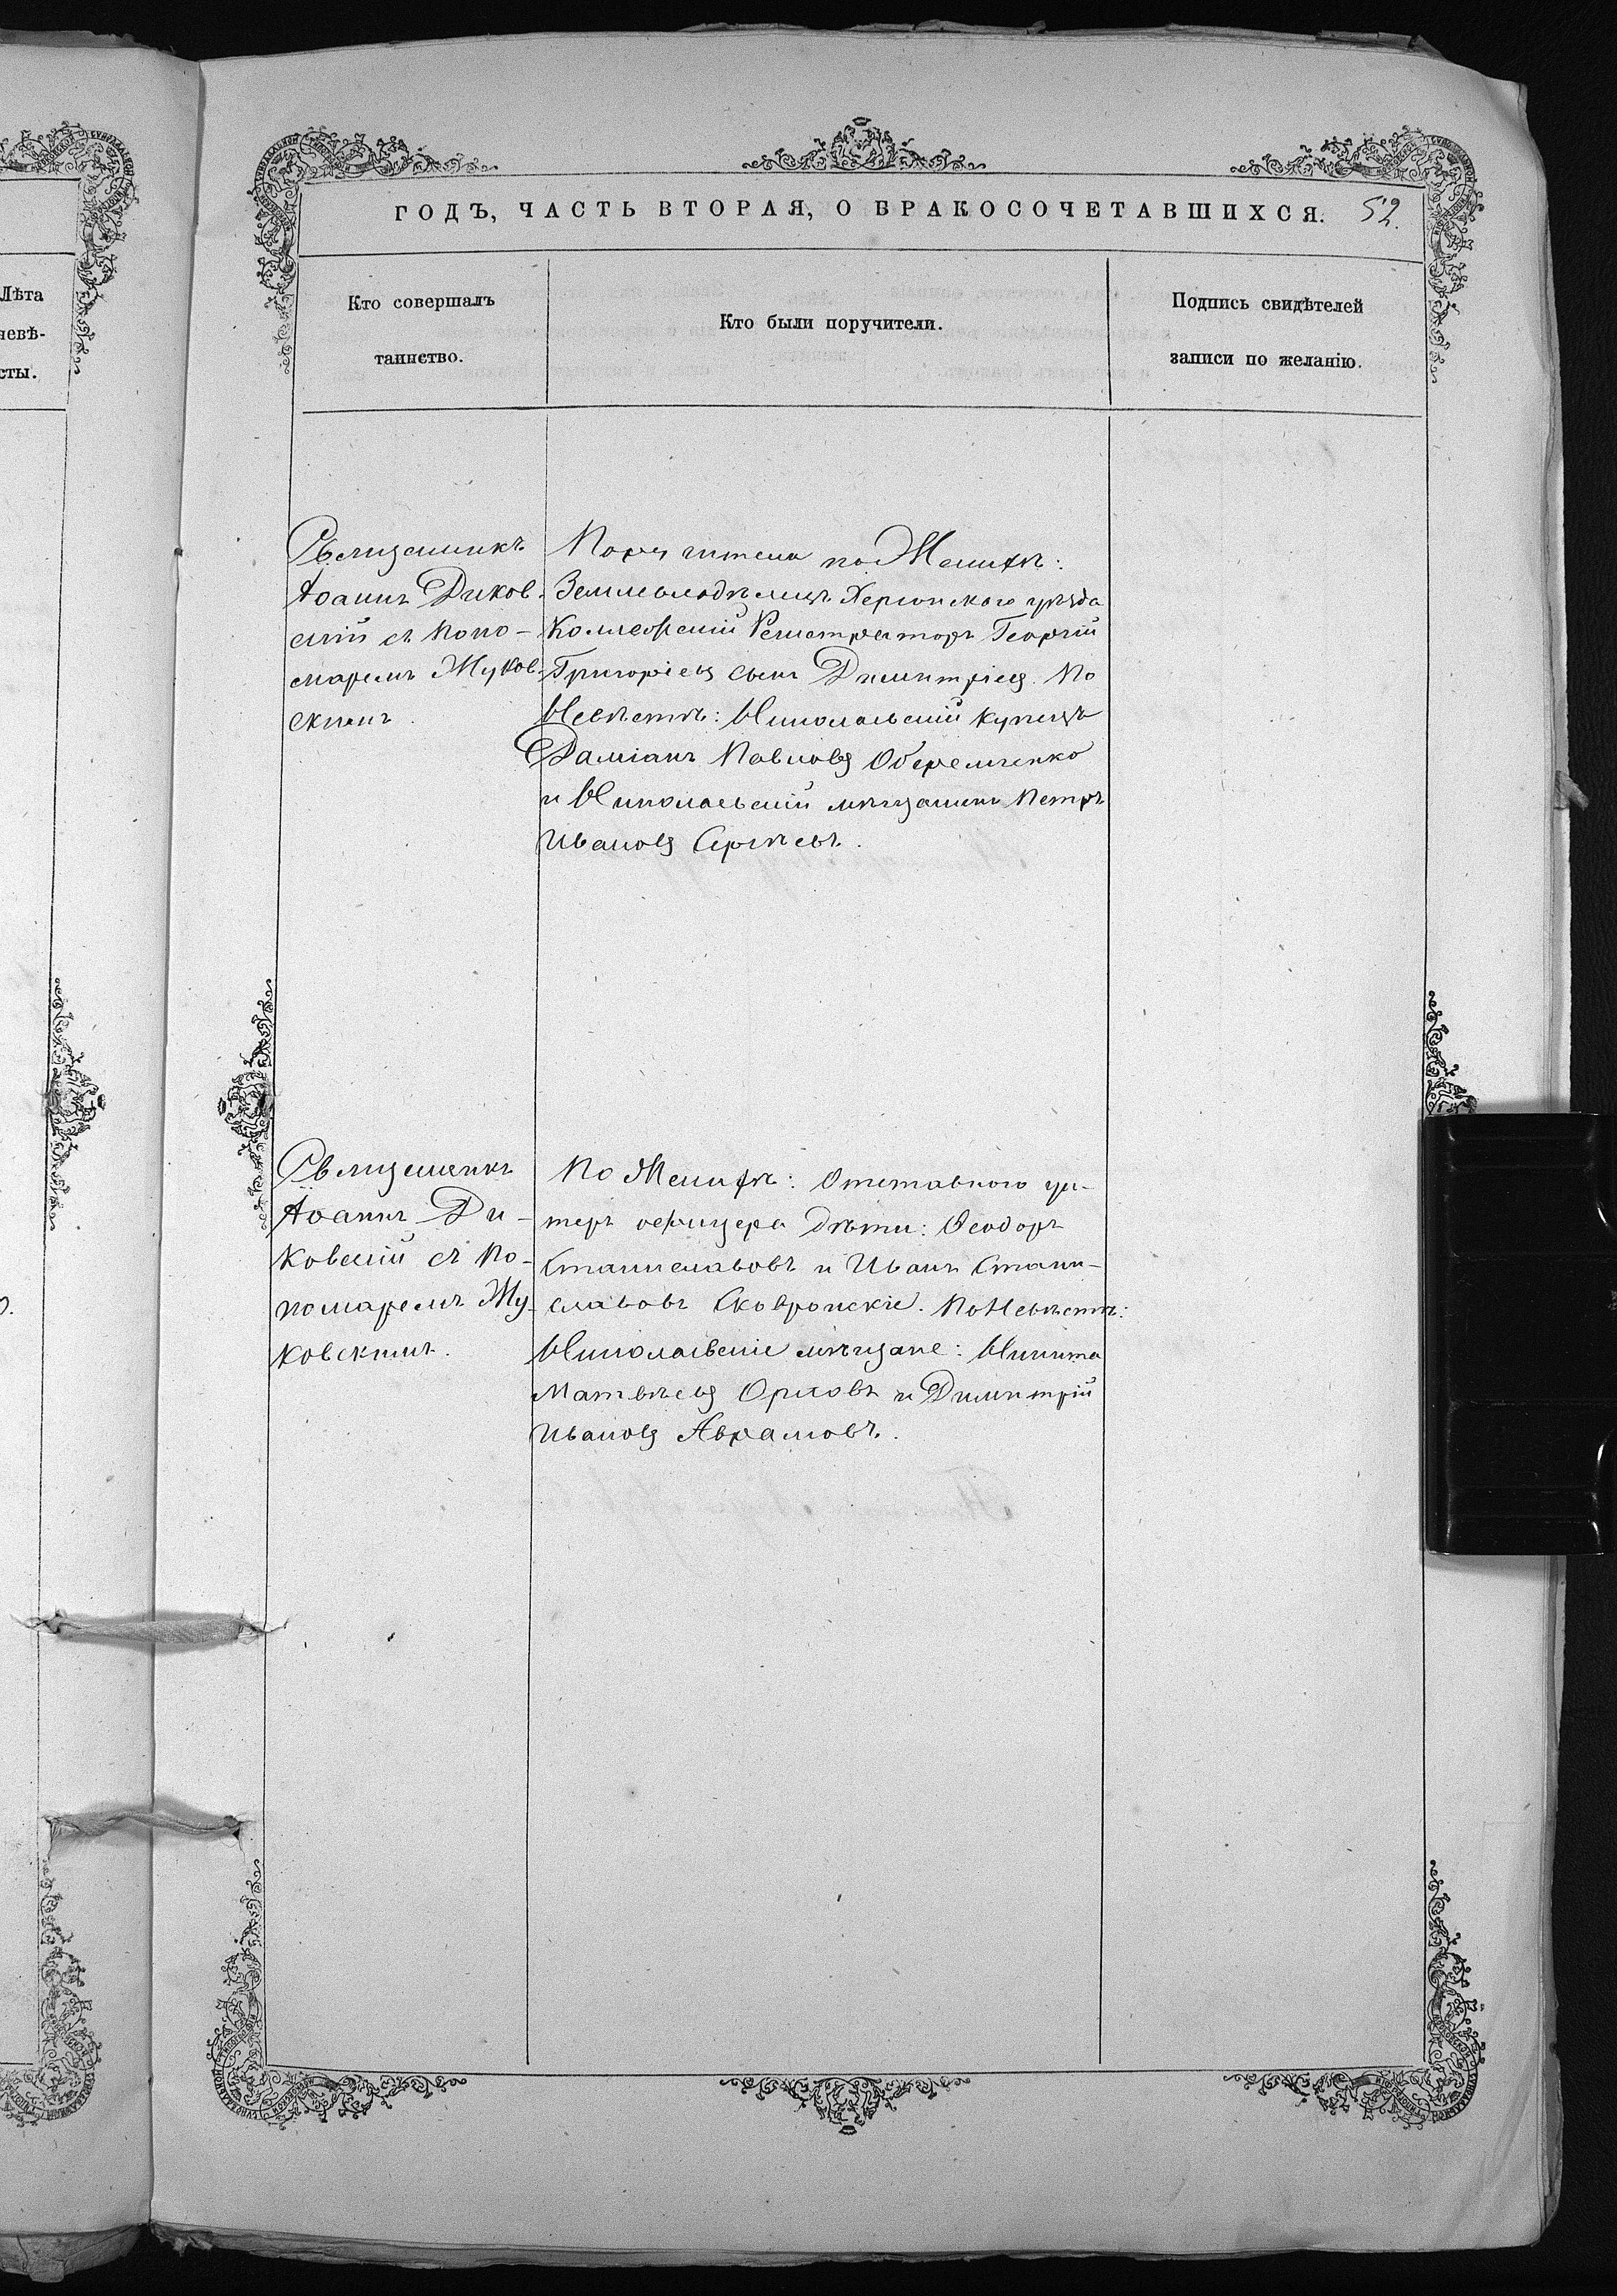 Лѣта
невѣ-
сты.
ГОДЪ, ЧАСТЬ ВТОРАЯ, О БРАКОСОЧЕТАВШИХСЯ. 52.
Кто совершалъ
таинство.
Кто были поручители.
Подпись свидѣтелей
записи по желанію.
Священникъ
Іоаннъ Диков-
скій съ Поно-
маремъ Жуков-
скимъ.
Поручители по Женихѣ:
Землевладѣлецъ Херсонскаго уѣзда
Коллежскій Регистраторъ Георгій
Григоріевъ сынъ Димитріевъ. По
Невѣстѣ: Николаевскій купецъ
Даміанъ Павловъ Оберемченко
и Николаевскій мѣщанинъ Петръ
Ивановъ Сергѣевъ.
Священникъ
Іоаннъ Ди-
ковскій съ По-
номаремъ Жу-
ковскимъ.
По Женихѣ: Отставного ун-
теръ офицера дѣти: Ѳеодоръ
Станиславовъ и Иванъ Стани-
славовъ Сковронскіе. По Невѣстѣ:
Николаевскіе мѣщане: Никита
Матвѣевъ Орловъ и Димитрій
Ивановъ Аврамовъ.